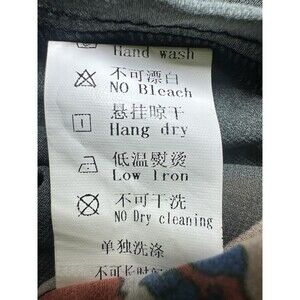 Hand wash
不可漂白
NO Bleach
悬挂晾干
Hang dry
低温熨烫
Low Iron
不可干洗
NO Dry cleaning
单独洗涤
不可长时